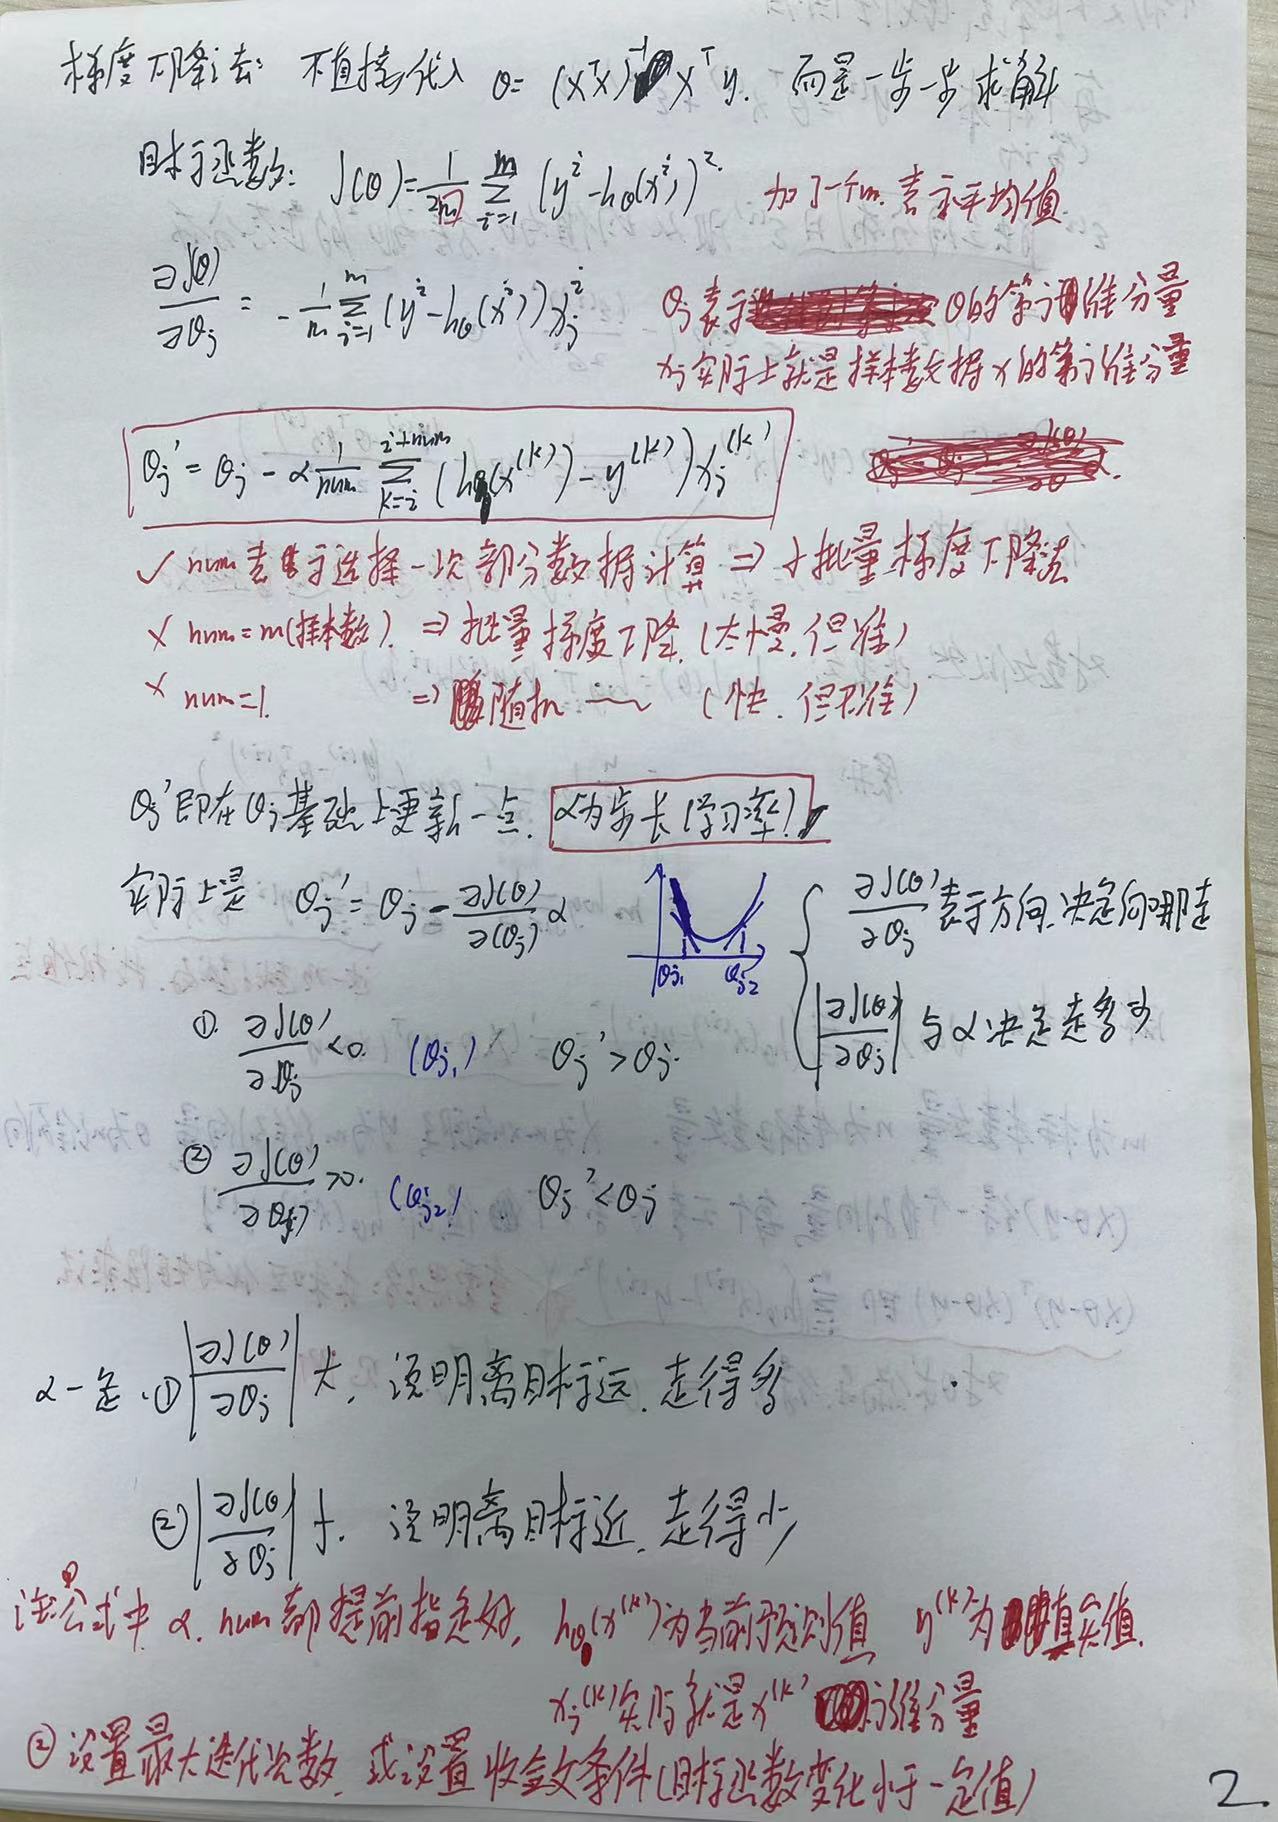 梯度下降法: 不直接代入 θ= (XᵀX)⁻¹Xᵀy. 而是一步一步求解
目标函数: J(θ)=1/2m Σ_{i=1}^{m} (yⁱ-hθ(xⁱ))². 加了一个m. 表示平均值
∂J(θ)/∂θj = -1/m Σ_{i=1}^{m} (yⁱ-hθ(xⁱ))xjⁱ θj表示 θ的第j维分量
xj实际上就是样本数据x的第j维分量
θj' = θj - α 1/num Σ_{k=i}^{i+num} (hθ(x^(k))-y^(k))xj^(k)
✓ num表示选择一次部分数据计算 ⇒ 小批量梯度下降法
× num=m(样本数). ⇒ 批量梯度下降.(太慢.但准)
× num=1. ⇒ 随机 —— (快.但不准)
θj'即在θj基础上更新一点. α为步长(学习率)
实际上是 θj'=θj-∂J(θ)/∂(θj) α
θj1 θj2
∂J(θ)/∂θj 表示方向.决定向哪走
|∂J(θ)/∂θj| 与α决定走多少
①. ∂J(θ)/∂θj <0. (θj1) θj'>θj.
② ∂J(θ)/∂(θj) >0. (θj2) θj'<θj
α一定.① |∂J(θ)/∂θj| 大. 说明离目标远.走得多
② |∂J(θ)/∂θj| 小. 说明离目标近.走得少
注:①公式中 α. num都提前指定好. hθ(x^(k))为当前预测值 y^(k)为真实值.
xj^(k)实际就是x^(k) j维分量
②设置最大迭代次数.或设置收敛条件(目标函数变化小于一定值)
2